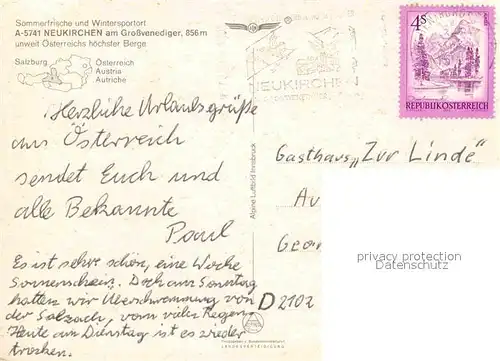 Sommerfrische und Wintersportort
A-5741 NEUKIRCHEN am Großvenediger, 856 m
unweit Österreichs höchster Berge
Salzburg
Österreich
Austria
Autriche
Herzliche Urlaubsgrüße
aus Österreich
sendet Euch und
alle Bekannte
Paul
Es ist sehr schön, eine Woche
Sonnenschein. Doch am Sonntag
hatten wir Überschwemmung von
der Salzach, vom vielen Regen.
Heute am Dienstag ist es wieder
trocken.
Alpine Luftbild Innsbruck
LANDESVERTEIDIGUNG
NEUKIRCHEN
4S
REPUBLIK ÖSTERREICH
Gasthaus „Zur Linde"
Au
Geor
D 2102
privacy protection
Datenschutz